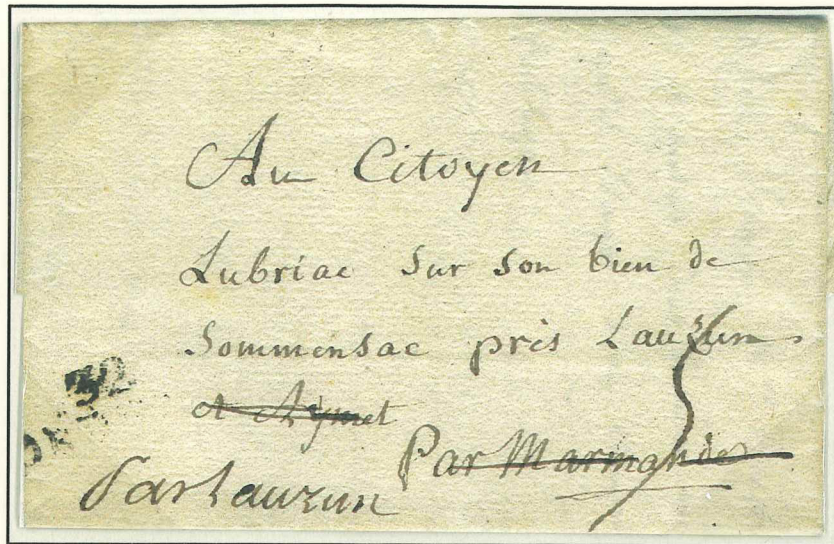 Au Citoyen
Lubriac sur son bien de
Sommensac près Lauzun
et Aymet
Par Marmande
Par Lauzun
32
5